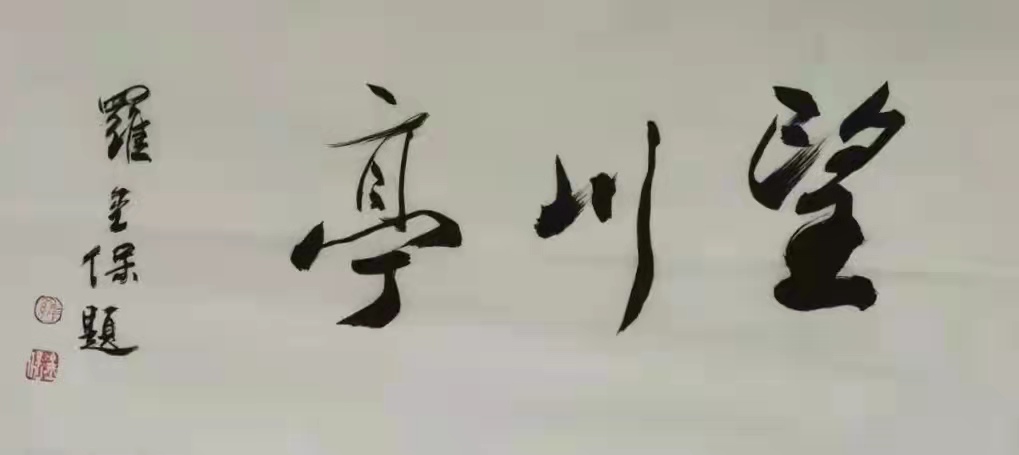 望川亭
羅至保題